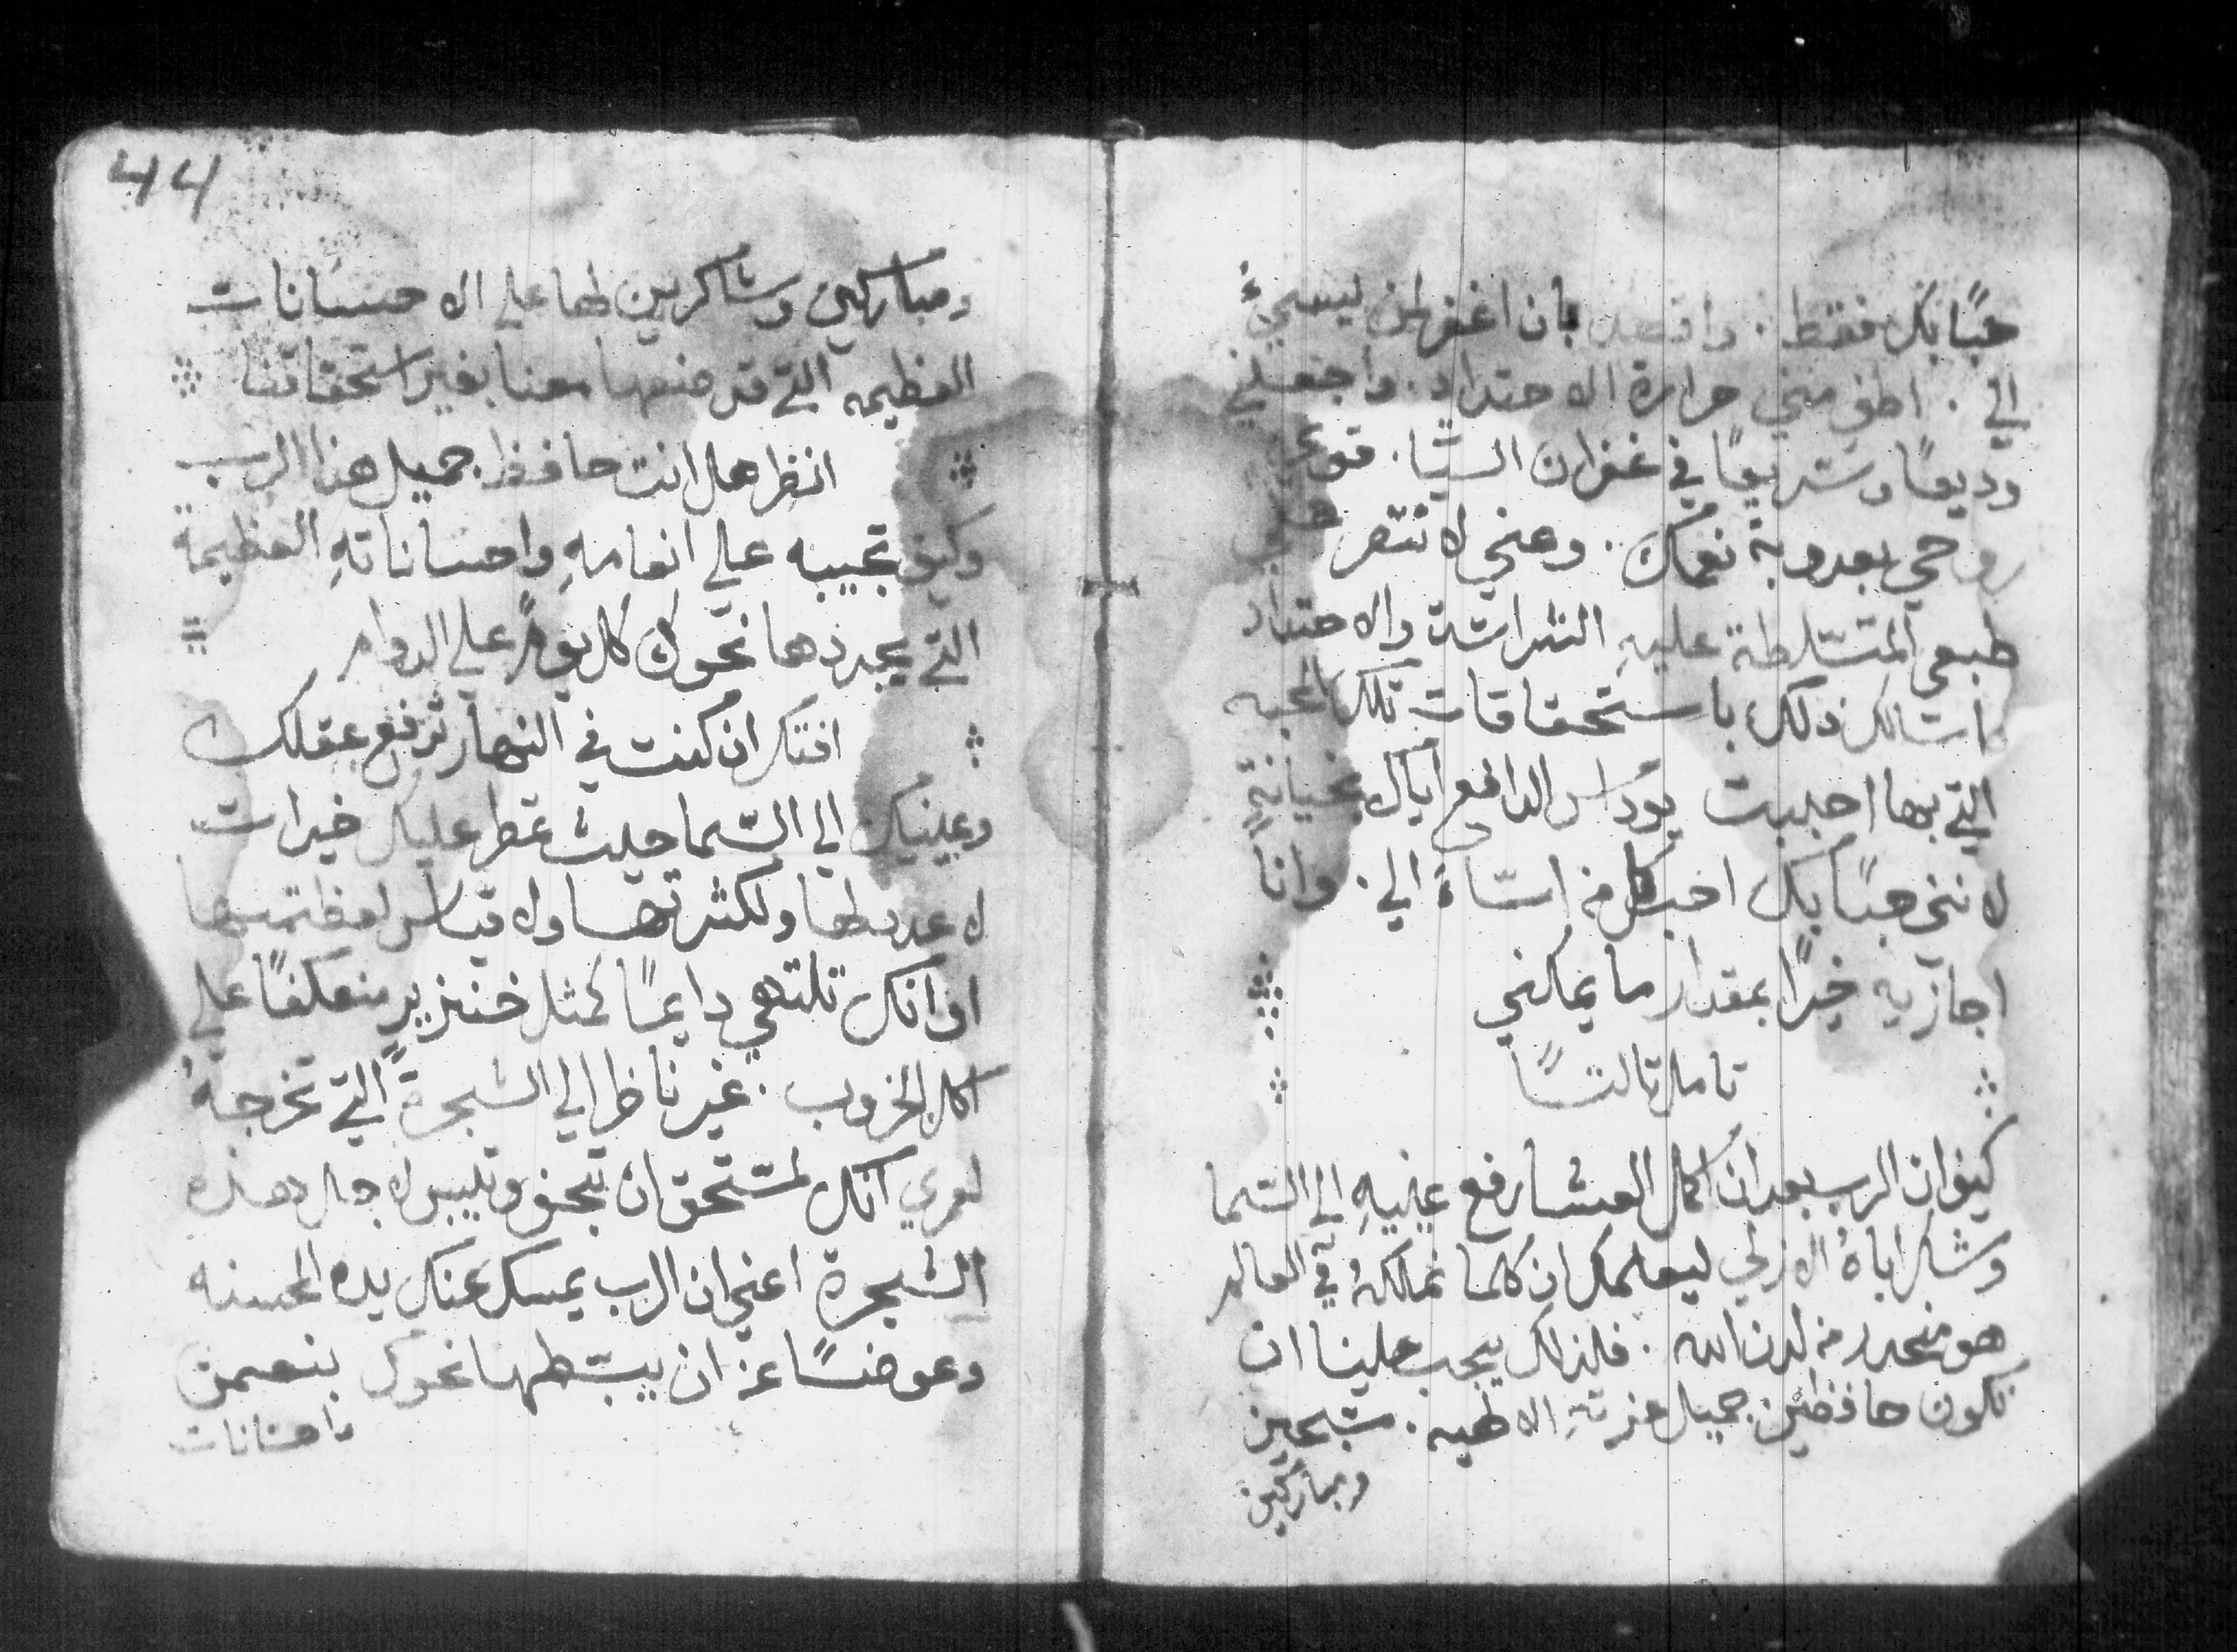 حبًا بك فقط. وافعل بان اغفر لمن يسيءُ
الي. اطفي مني حرارة الاحتداد. واجعلني
وديعًا وسريعًا في غفران السيا. قوي
روحي بعدوبة نعمتك. وعني لا تنتصر
طبعي المتسلطة عليهِ الشراسة والاحتداد
اسالك ذلك باستحقاقات تلك المحبه
التي بها احببت يوداس الدافع اياك بخيانةٍ
لانني حبًا بك احب كل من اساءَ الي. وانا
اجازيه خيرًا بمقدار ما يمكنني
تامل تالتًا
كيف ان الرب بعد ان اكمل العشا رفع عينيهِ الي السما
وشكر اباهُ الازلي ليعلمك ان كلما نملكهُ في العالم
هو منحدر من لدن الله. فلذلك يجب علينا ان
نكون حافظين جميل عزتهِ الالهيه. مسبحين
ومباركين
44
ومباركين وشاكرين لها علي الاحسانات
العظيمه التي قد صنعها معنا بغير استحقاقنا
انظر هل انت حافظ جميل هذا الرب
وكيف تجيبه علي انعامهِ واحساناتهِ العظيمة
التي يجددها نحوك كل يومٍ علي الدوام
افتكر ان كنت في النهار ترفع عقلك
وعينيك الي السما حيث تمطر عليك خيرات
لا عدد لها ولكثرتها ولا قياس لعظمتها
او انك تلتهي دايمًا كمثل خنزيرٍ منعكفًا علي
اكل الخروب. غير ناظر الي الشجرة التي تخرجهُ
لعمري انك لمستحق ان تجف وتيبس لاجل هذه
الشجرة اعني ان الرب يمسك عنك يده المحسنه
وعوضًا عن ان يبسطها نحوك بنعمٍ
واحسانات